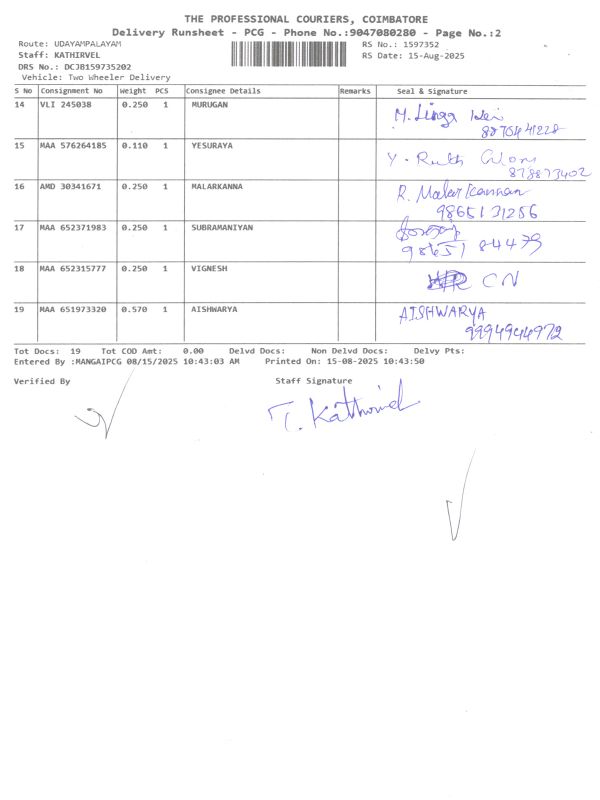 THE PROFESSIONAL COURIERS, COIMBATORE
Delivery Runsheet - PCG - Phone No.:9047080280 - Page No.:2
Route: UDAYAMPALAYAM RS No.: 1597352
Staff: KATHIRVEL RS Date: 15-Aug-2025
DRS No.: DCJB159735202
Vehicle: Two Wheeler Delivery
S No Consignment No Weight PCS Consignee Details Remarks Seal & Signature
14 VLI 245038 0.250 1 MURUGAN M. Linga
15 MAA 576264185 0.110 1 YESURAYA Y. Ruth
878873402
16 AMD 30341671 0.250 1 MALARKANNA R. Malarkannan
9865131256
17 MAA 652371983 0.250 1 SUBRAMANIYAN
9865184479
18 MAA 652315777 0.250 1 VIGNESH CN
19 MAA 651973320 0.570 1 AISHWARYA AISHWARYA
9994944972
Tot Docs: 19 Tot COD Amt: 0.00 Delvd Docs: Non Delvd Docs: Delvy Pts:
Entered By :MANGAIPCG 08/15/2025 10:43:03 AM Printed On: 15-08-2025 10:43:50
Verified By Staff Signature
T. Kathirvel